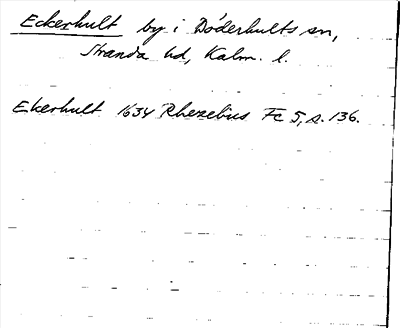 Eckerhult by i Döderhults sn,
Stranda hd, Kalm. l.
Ekerhult 1634 Rhezelius Fc 5, s. 136.